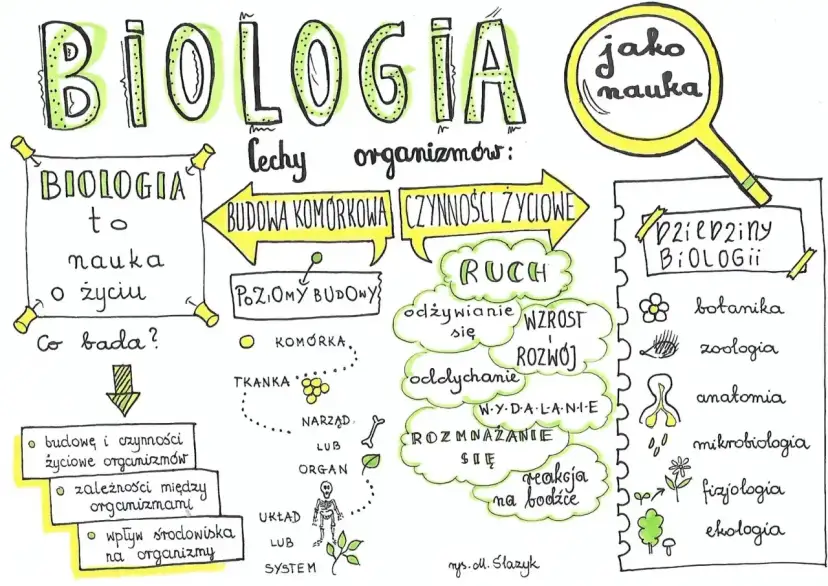 BIOLOGIA
jako
nauka
Cechy organizmów:
BIOLOGIA
to
nauka
o życiu
Co bada?
budowę i czynności
życiowe organizmów
zależności między
organizmami
wpływ środowiska
na organizmy
BUDOWA KOMÓRKOWA
POZIOMY BUDOWY
KOMÓRKA
TKANKA
NARZĄD
LUB
ORGAN
UKŁAD
LUB
SYSTEM
CZYNNOŚCI ŻYCIOWE
RUCH
odżywianie
się
WZROST
I
ROZWÓJ
oddychanie
W·Y·D·A·L·A·N·I·E
ROZMNAŻANIE
SIĘ
reakcja
na bodźce
rys. M. Ślazyk
DZIEDZINY
BIOLOGII
botanika
zoologia
anatomia
mikrobiologia
fizjologia
ekologia